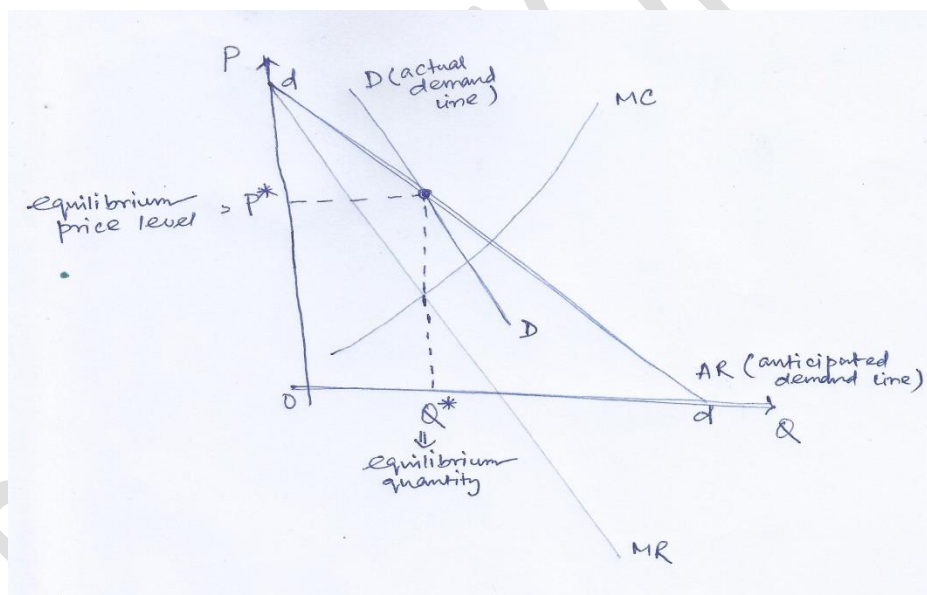 P
d
D (actual
demand
line)
MC
equilibrium
price level
P*
D
AR (anticipated
demand line)
O
Q*
d
Q
⇓
equilibrium
quantity
MR